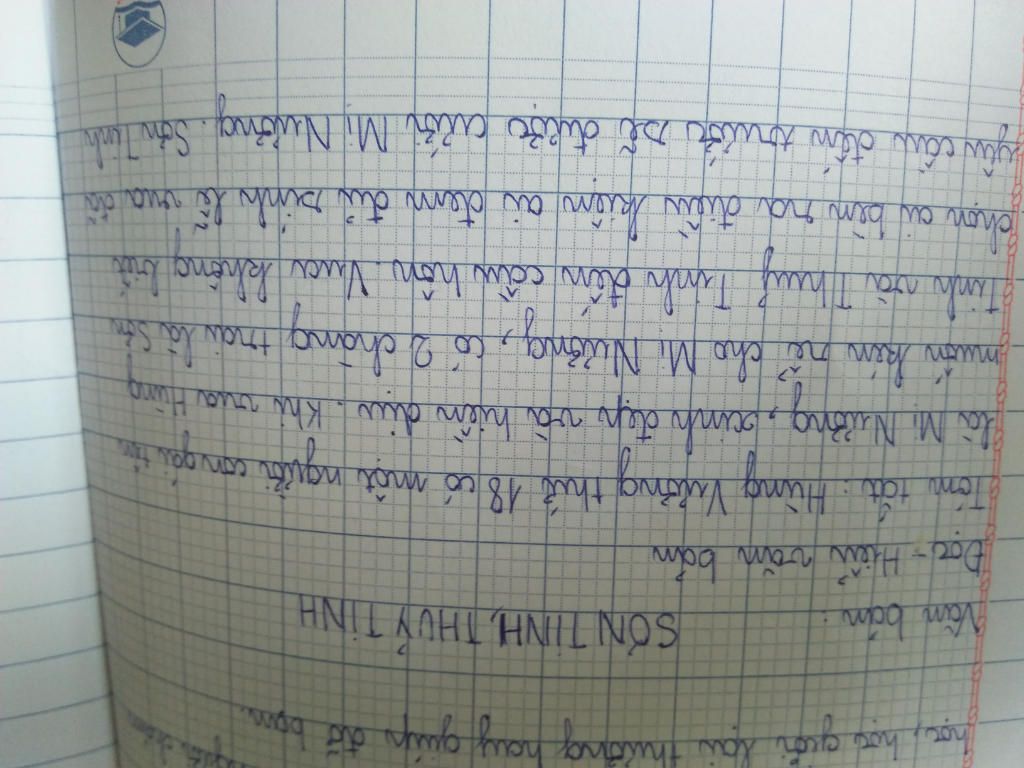 học, học giỏi lại thường hay giúp đỡ bạn.
Văn bản: SƠN TINH, THUỶ TINH
Đọc - Hiểu văn bản
Tóm tắt: Hùng Vương thứ 18 có một người con gái tên
là Mị Nương, xinh đẹp và hiền dịu. Khi vua Hùng
muốn kén rể cho Mị Nương, có 2 chàng trai là Sơn
Tinh và Thuỷ Tinh đến cầu hôn. Vua không biết
chọn ai bèn ra điều kiện ai đem đủ sính lễ vua đã
yêu cầu đến trước sẽ được cưới Mị Nương. Sơn Tinh